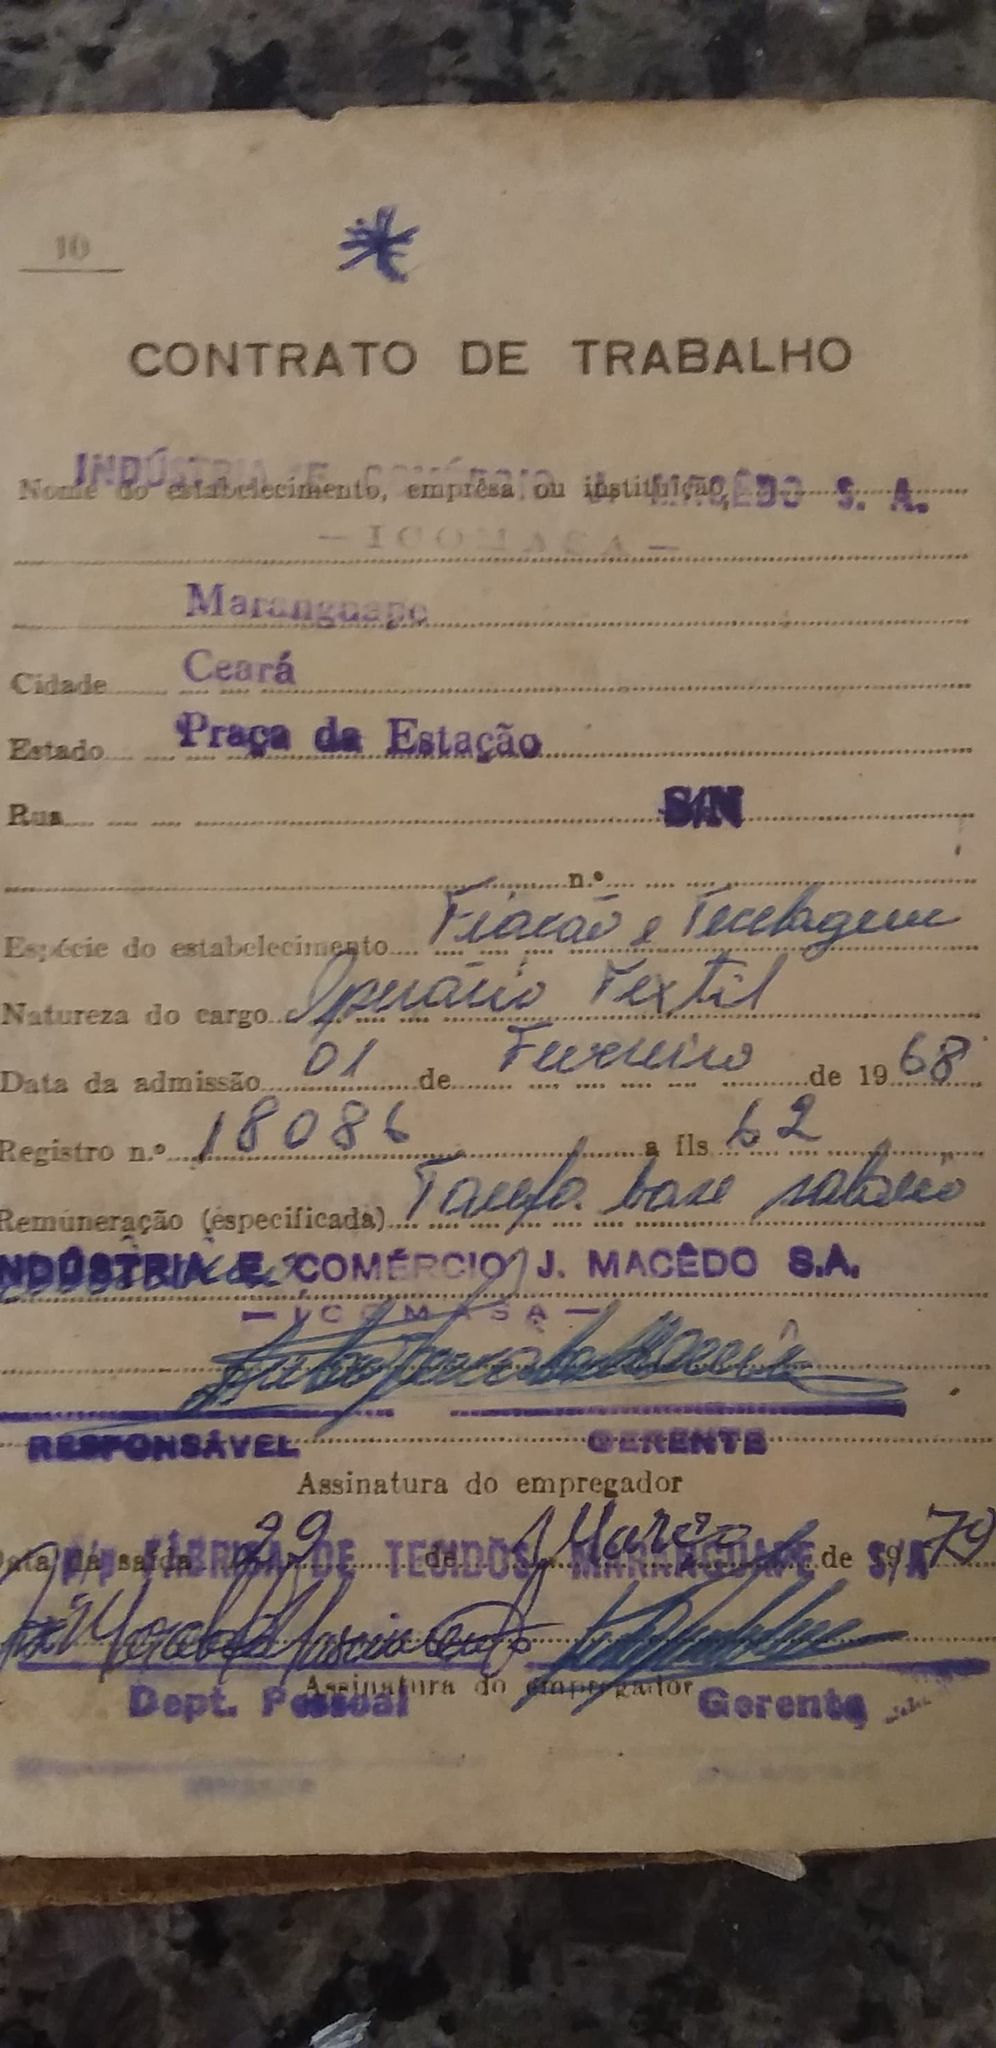 10
CONTRATO DE TRABALHO
INDÚSTRIA E COMÉRCIO J. MACÊDO S. A.
Nome do estabelecimento, emprêsa ou instituição,
— ICOMASA —
Maranguape
Cidade Ceará
Estado Praça da Estação
Rua S/N
n.º
Espécie do estabelecimento Fiação e Tecelagem
Natureza do cargo Operário Textil
Data da admissão 01 de Fevereiro de 1968
Registro n.º 18086 a fls 62
Remuneração (especificada) Tarefa base salário
INDÚSTRIA E COMÉRCIO J. MACÊDO S.A.
— ICOMASA —
RESPONSÁVEL GERENTE
Assinatura do empregador
Data da saída 29 de Março de 1970
p/p FÁBRICA DE TECIDOS MARANGUAPE S/A
Assinatura do empregador
Dept. Pessoal Gerente